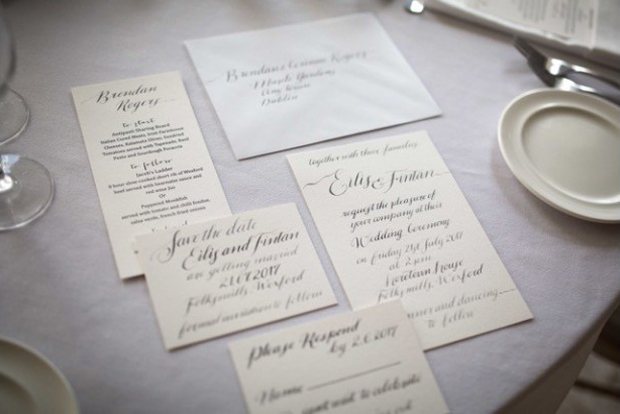 Brendan & Corinne Rogers
Maple Gardens,
Any Town
Dublin
Brendan
Rogers
to start
Antipasti Sharing Board
Italian Cured Meats, Irish Farmhouse
Cheeses, Calamari, Sundried
Tomatoes served with Tapenade, Basil
Pesto and Sourdough Breads
to follow
Jacob's Ladder
8 hour slow cooked short rib of Wexford
beef served with horseradish and
red wine jus
Or
Poppined Monkfish
served with tomato and chilli fondue,
salsa verde, french fried onions
together with their families
Eilis & Fintan
request the pleasure of
your company at their
Wedding Ceremony
on friday 21st July 2017
at 2 pm
Newtown House
Folksmills, Wexford
dinner and dancing
to follow
Save the date
Eilis and Fintan
are getting married
21.07.2017
Folksmills, Wexford
formal invitation to follow
Please Respond
by 2.6.2017
Name
want to celebrate